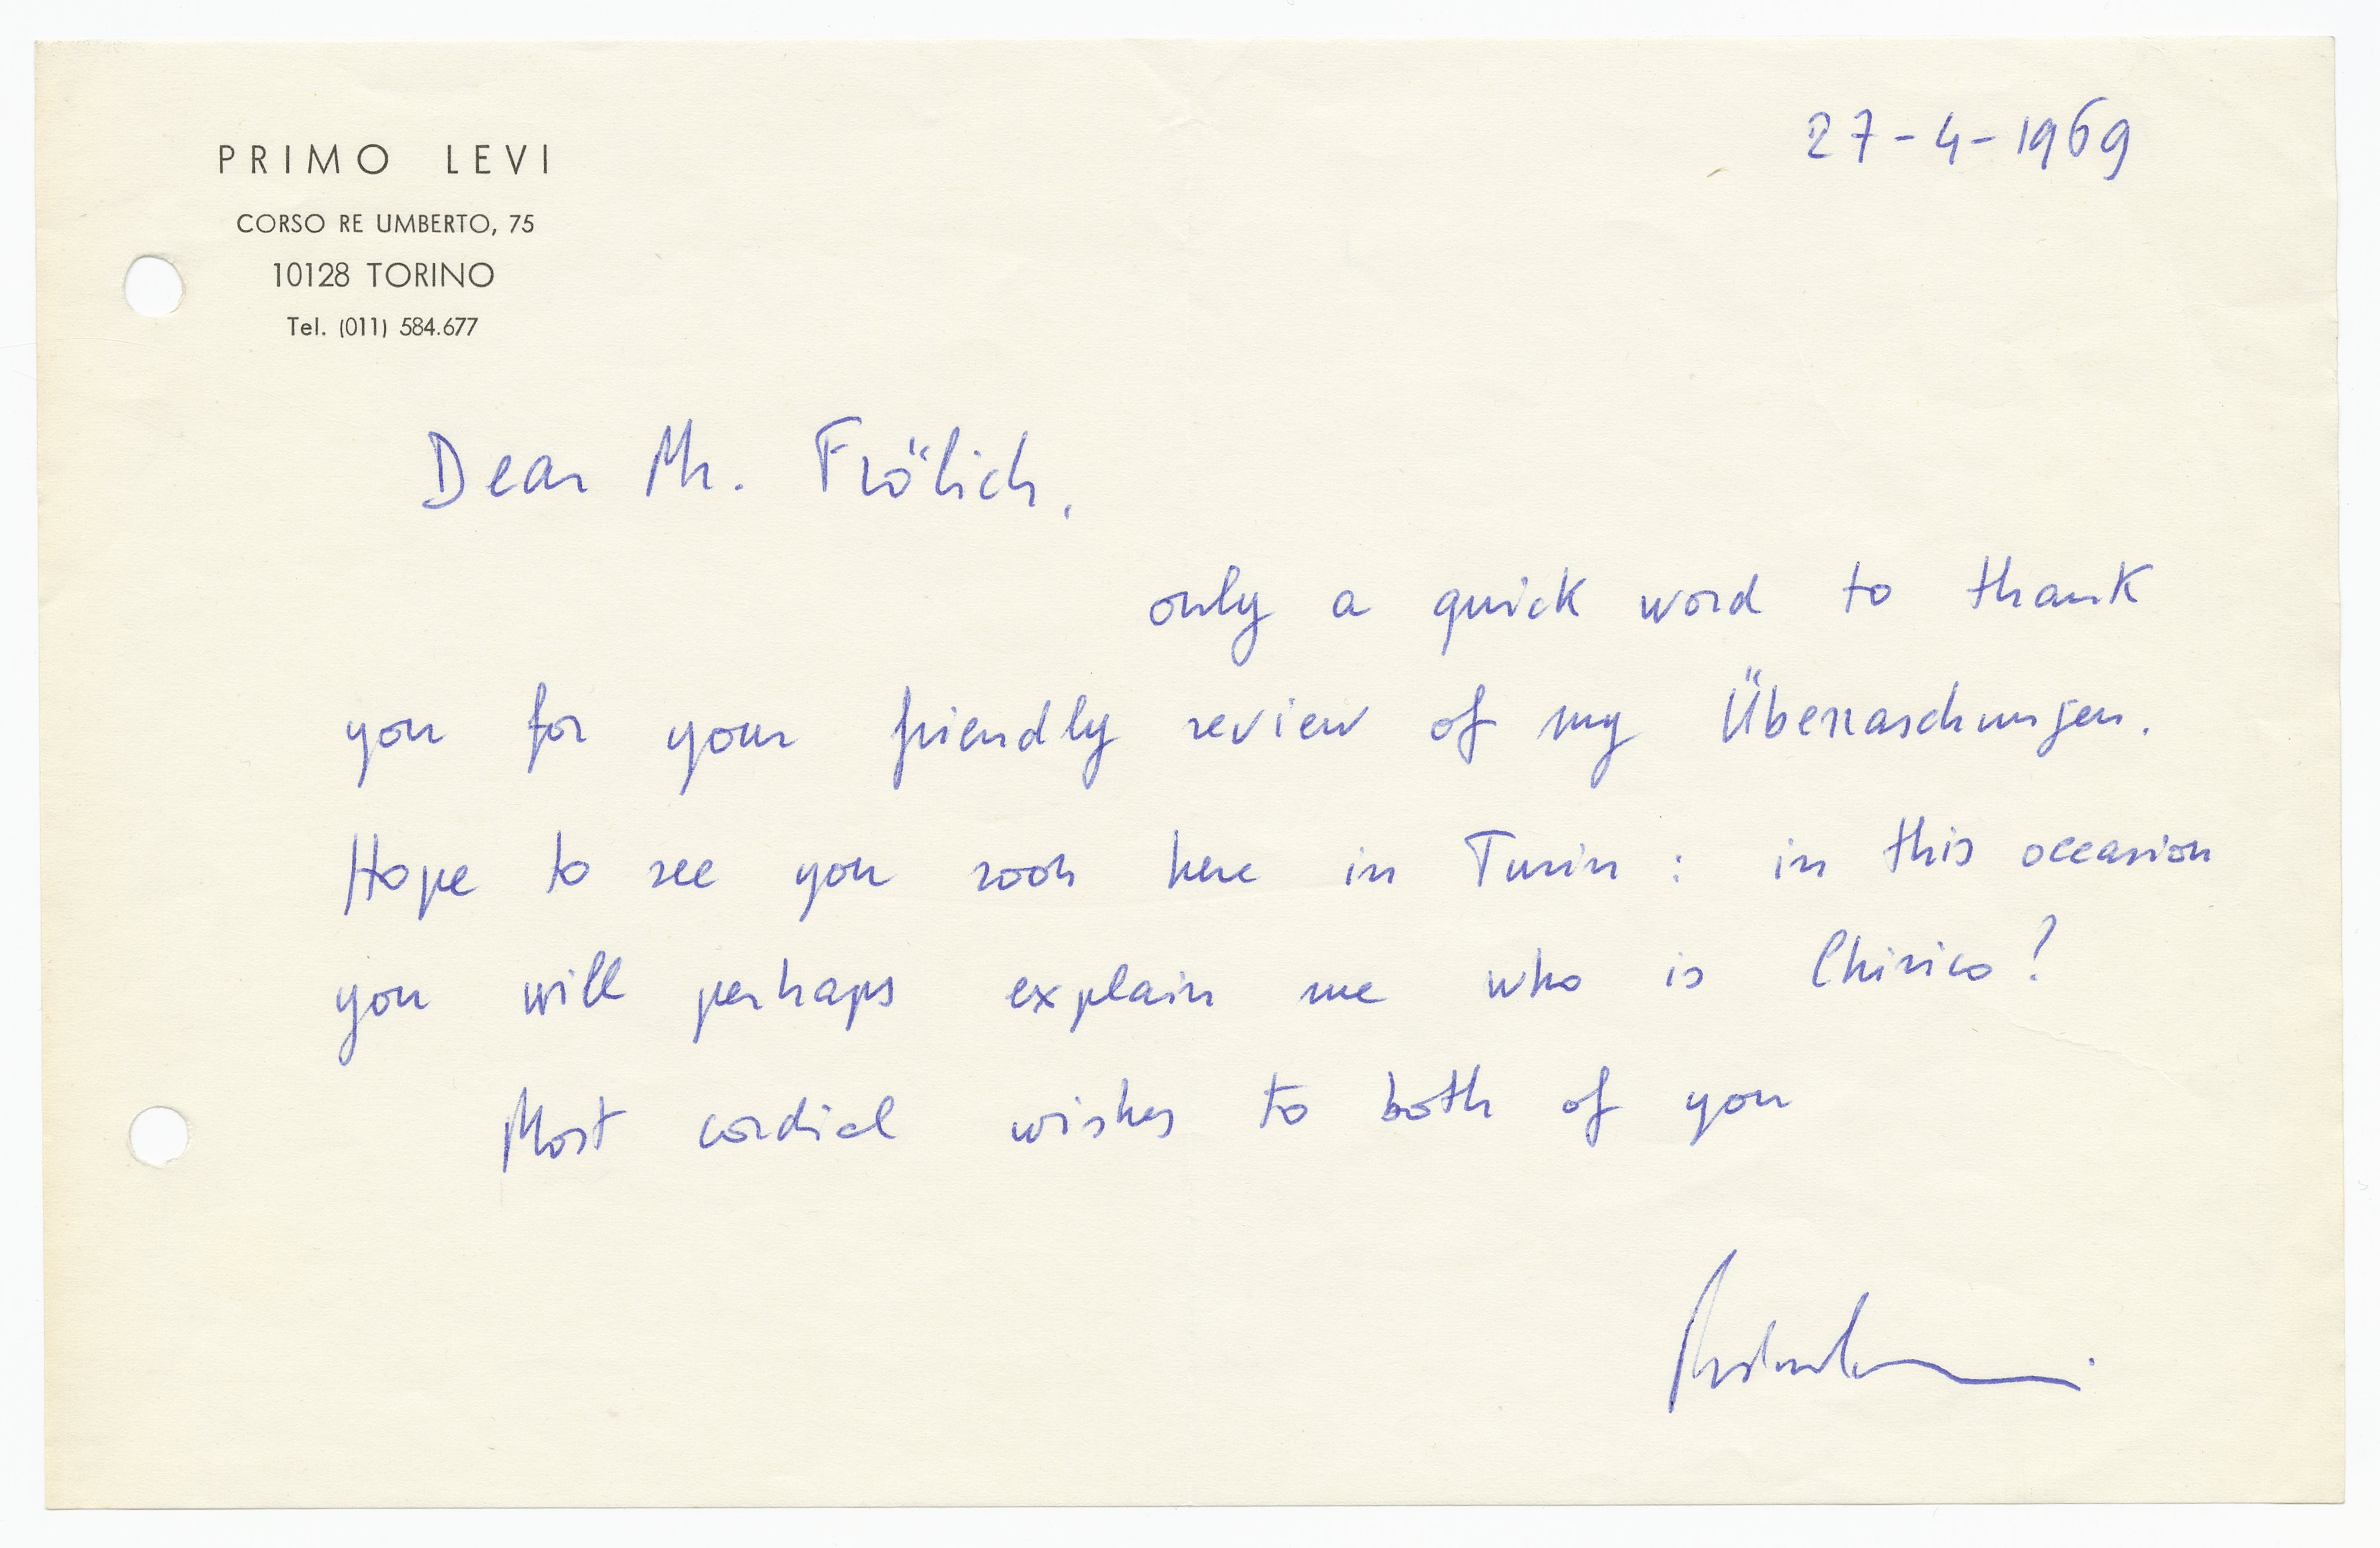 PRIMO LEVI
CORSO RE UMBERTO, 75
10128 TORINO
Tel. (011) 584.677
27-4-1969
Dear Mr. Frölich,
only a quick word to thank
you for your friendly review of my Überraschungen.
Hope to see you soon here in Turin : in this occasion
you will perhaps explain me who is Chirico?
Most cordial wishes to both of you